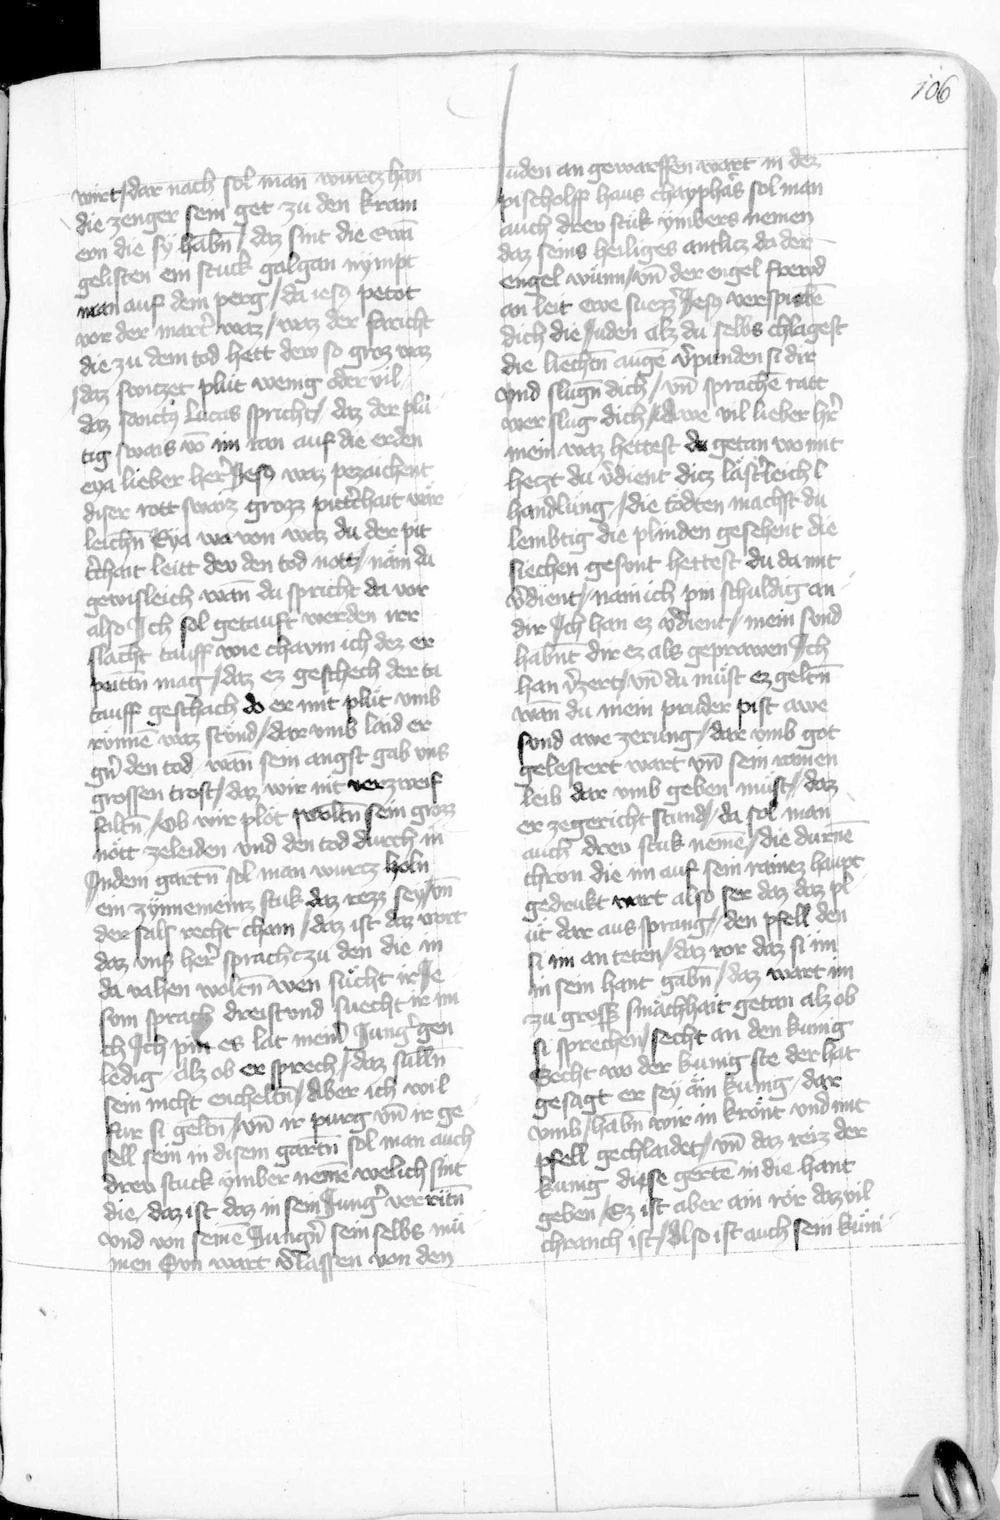 106
wirt / dar nach sol man wurtz han
die zenger sein get zu den kram
ern die sÿ habn̄ / daz sint die ewā
gelisten ein stuck galgan nÿmpt
man auf dem perg / da iesꝫ petot
vor der mart̄ waz / waz der foricht
die zu dem tod hett der so groz waz
daz switzet plůt wenig oder vil /
daz sanctꝫ lucas spricht / daz der plů
tig swais vō im ran auf die erden
eya lieber her̄ Jesꝫ waz pezaichent
diser rott swaiz grozz pittˀchait wār
leichn̄ Eya wa von waz du der pit
tˀchait leitt der den tod nott / nain du
gewisleich wan̄ du spricht da vor
also Ich sol getauft werden irr
slacht tauff wie chaum ich dez er
pittn̄ mag / daz ez geschech der ta
tauff geschach do er mit plůt vmb
runnē waz stůnd / dar vmb laid er
gn̄ den tod wan̄ sein angst gab vns
grossen trost / daz wir nit verzweif
faltn̄ / Ob wir plöt woltn̄ sein grozz
nött zeleiden vnd den tod durch in
Jndem gartn̄ sol man wurtz holn
ein zÿnnemeinz stuk daz rezz seÿ vn̄
der sals recht cham / daz ist daz wort
daz vnsꝫ her̄ sprach zu den die in
da vahen woltn̄ wen sůcht ir Je
sum sprach dreistund suecht ir mi
ch Ich pin es lat mein̄ Jungˀ gen
ledig / alz ob er sprech / daz sulln̄
sein nicht encheltn̄ / Aber ich wil
fur si geltn̄ / vn̄ ir purg vn̄ ir ge
sell sein in disem gartn̄ sol man auch
dreu stuck ÿmber nemē welich sint
die / daz ist daz in sein Jungˀ verritn̄
vnd von seinē Jungn̄ sein selbs mů
men Sun wart v̄lassen von den
Juden an geworffen wart in dez
pischolff haus chayphas sol man
auch dreu stuk ÿmbers nemen
daz seins heiliges antlitz da der
engel wunn / vn̄ der engel frewd
an leit ewe suezzˀ Jesꝫ verspiebē
dich die Juden alz du selbs chlagest
die liechtn̄ auge v̄punden si dir
vnd slugn̄ dich / vn̄ sprachē ratt
wer slug dich / Awe vil lieber her̄
mein waz hettest du getan wo mit
hetzt du v̄dient dicz lästˀleich l
handlung / die tödten machst du
lembtig die plinden gesehent die
siechen gesunt hettest du da mit
v̄dient / nain ich pin schuldig an
dir Ich han ez v̄dient / mein sund
habnt dir ez als geprawen Ich
han v̄zert / vn̄ du můst ez geltn̄
wan̄ du mein průder pist awe
sund awe zerung / dar vmb got
gelestert wart vn̄ sein ramen
leib dar vmb geben můst / daz
er zegericht stund / da sol man
auch dreu stuk nemē / die durnē
chron die im auf sein rainez haupt
gedrukt wart also ser daz daz pl
ůt dar aus sprang / den pfell den
si im an teten / daz ror daz si im
in sein hant gabn̄ / daz wart im
zu grosz smachhait getan alz ob
si sprechen / secht an den kunig
Secht wo der kunig ste der hat
gesagt er sey ain kunig / dar
vmb / habn̄ wir in krönt vnd mit
pfell gechlaidet / vn̄ daz reiz der
kunig diese gerte in die hant
geben / Ez ist aber ain rör daz vil
chranch ist / Also ist auch sein kuni